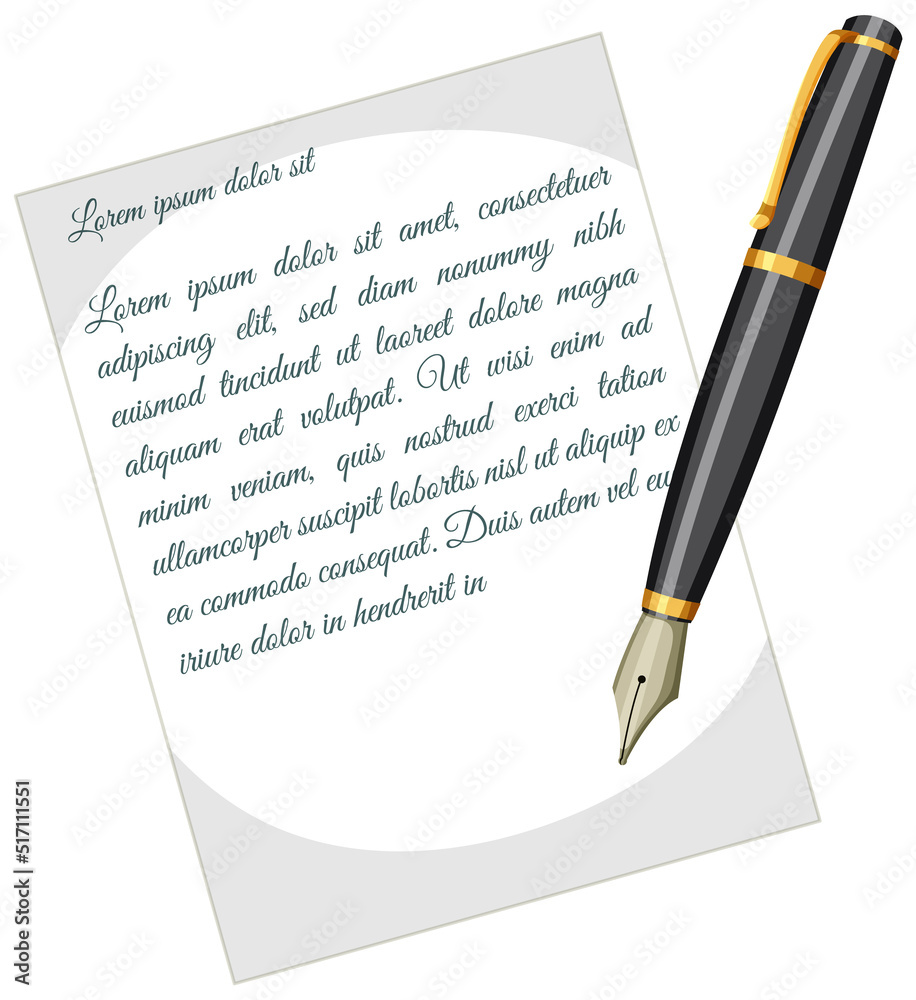 Lorem ipsum dolor sit
Lorem ipsum dolor sit amet, consectetuer
adipiscing elit, sed diam nonummy nibh
euismod tincidunt ut laoreet dolore magna
aliquam erat volutpat. Ut wisi enim ad
minim veniam, quis nostrud exerci tation
ullamcorper suscipit lobortis nisl ut aliquip ex
ea commodo consequat. Duis autem vel eu
iriure dolor in hendrerit in
Adobe Stock | #517111551